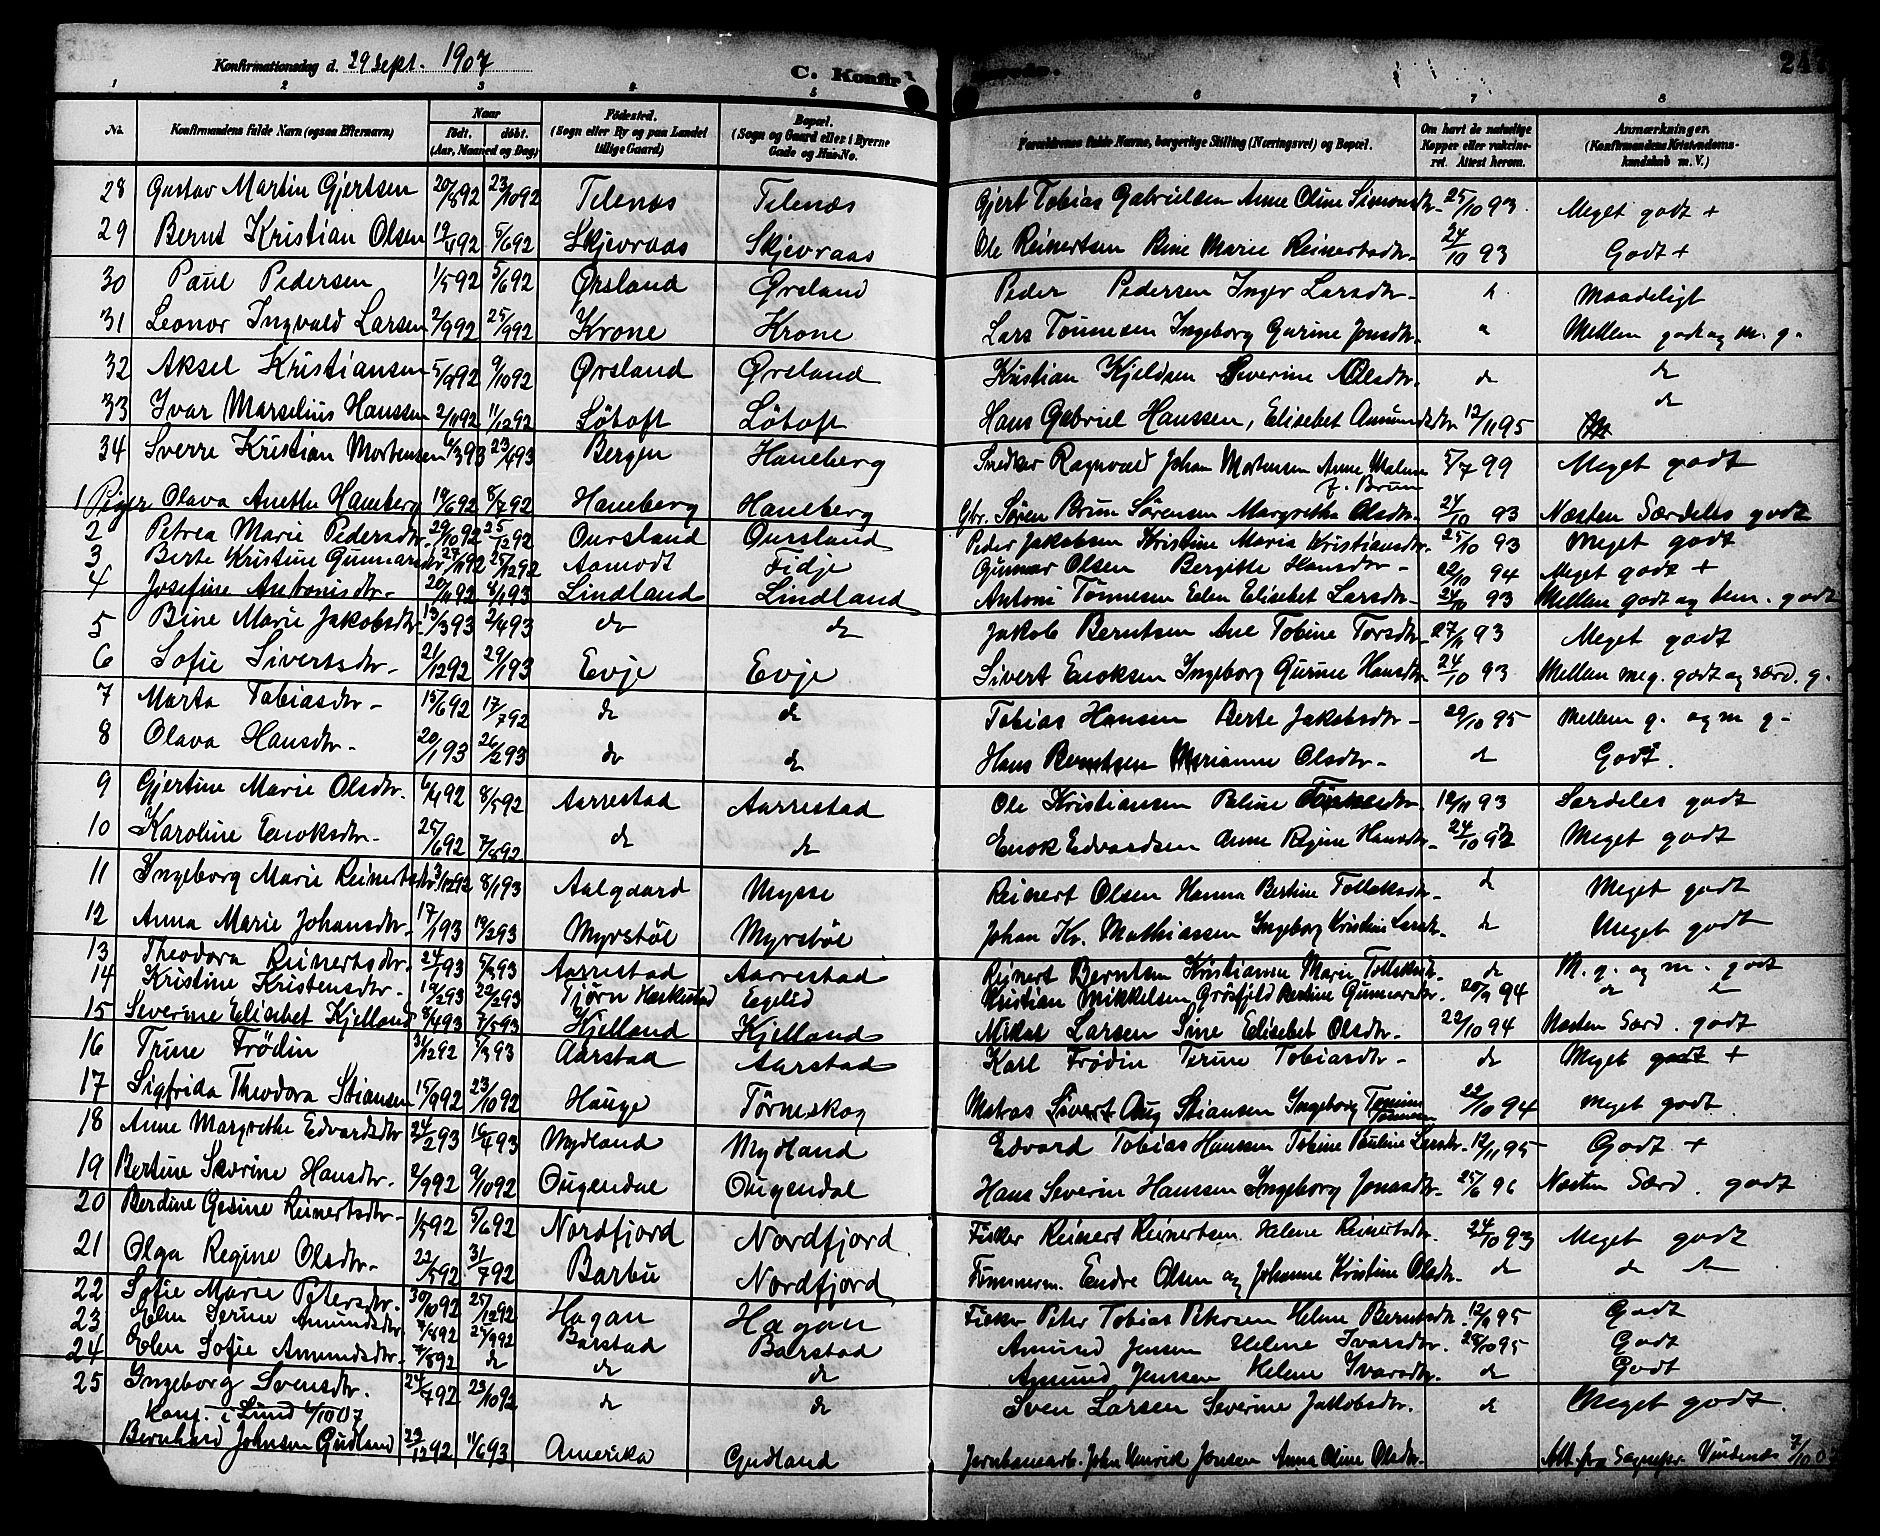 Konfirmationsdag d. 29 sept. 1907
C. Konfir
1 2 3 4 5 6 7 8
No. Konfirmandens fulde Navn (ogsaa Efternavn) Naar født. døbt. (Aar, Maaned og Dag) Fødested. (Sogn eller By og paa Landet tillige Gaard) Bopæl. (Sogn og Gaard eller i Byerne Gade og Hus-No. Forældrenes fulde Navne, borgerlige Stilling (Næringsvei) og Bopæl. Om havt de naturlige Kopper eller vaccineret. Attest herom. Anmærkninger. (Konfirmandens Kristendomskundskab m. V.)
28 Gustav Martin Gjertsen 20/892 23/1092 Telenæs Telenæs Gjert Tobias Gabrielsen Anne Oline Simonsdtr. 25/10 93 Meget godt +
29 Bernt Kristian Olsen 19/492 5/692 Skjevraas Skjevraas Ole Reinertsen Bine Marie Reinertsdtr. 24/10 93 Godt +
30 Paul Pedersen 1/592 5/692 Ørsland Ørsland Peder Pedersen Inger Larsdtr. Maadeligt
31 Leonor Ingvald Larsen 2/992 25/992 Krone Krone Lars Tønnesen Ingeborg Gurine Jonsdtr. Mellem godt og m. g.
32 Aksel Kristiansen 5/992 9/1092 Ørsland Ørsland Kristian Kjeldsen Severine Olsdtr. do do
33 Ivar Marselius Hanssen 2/1192 11/1292 Løtoft Løtoft Hans Gabriel Hanssen, Elisebet Amundsdtr 12/1195 do
34 Sverre Kristian Mortensen 6/393 23/493 Bergen Haneberg Snedker Ragnvald Johan Mortensen Anne Malene f. Bruun 5/7 99 Meget godt
1 Piger Olava Anette Haneberg 19/692 8/792 Haneberg Haneberg Gbr. Søren Brun Sørensen Margrethe Olsdtr. 24/10 93 Næsten Særdeles godt
2 Petrea Marie Pedersdtr. 29/1092 25/1292 Oursland Oursland Peder Jakobsen Kristine Maria Kristiansdtr. 25/10 93 Meget godt
3 Berte Kristine Gunnarsdtr 27/1192 25/1292 Aamodt Fidje Gunnar Olsen Bergitte Hansdtr 22/10 94 Meget godt +
4 Josefine Antonisdtr. 20/1192 6/193 Lindland Lindland Antoni Tønnesen Elen Elisebet Larsdtr. 24/10 93 Mellem godt og tem. godt
5 Bine Marie Jakobsdtr. 13/393 2/493 do do Jakob Berntsen Ane Tobine Torsdtr. 27/11 93 Meget godt
6 Sofie Sivertsdtr. 21/1292 29/193 Evje Evje Sivert Enoksen Ingeborg Gurine Hansdtr 24/10 93 Mellem meg. godt og særd. g.
7 Marta Tobiasdtr. 15/692 17/792 do do Tobias Hansen Berte Jakobsdtr. 29/10 95 Mellem g. og m g.
8 Olava Hansdtr. 20/193 26/293 do do Hans Berntsen Marianne Olsdtr. do Godt.
9 Gjertine Marie Olsdtr. 6/492 8/592 Aarrestad Aarrestad Ole Kristiansen Beline 12/11 93 Særdeles godt
10 Karoline Enoksdtr. 25/692 7/892 do do Enok Edvardsen Anne Regine Hansdtr. 24/10 92 Meget godt
11 Ingeborg Marie Reinertsdtr 3/1292 8/193 Aalgaard Mysse Reinert Olsen Hanna Bertine Tolleksdtr. do Meget godt
12 Anna Marie Johansdtr. 17/193 19/293 Myrstøl Myrstøl Johan Kr. Mathiassen Ingeborg Kristine Larsdtr. do Meget godt
13 Theodora Reinertsdtr. 24/193 5/393 Aarrestad Aarrestad Reinert Berntsen Kristianne Marie Tolleksdtr. do M. g. og m. godt
14 Kristine Kristensdtr. 19/293 22/293 Tjørn Heskestad Egelid Kristian Mikkelsen Grøsfjeld Bertine Gunnarsdtr. 20/9 94 do
15 Severine Elisebet Kjelland 8/493 7/593 Kjelland Kjelland Mikal Larsen Sine Elisebet Olsdtr. 22/10 94 Næsten Særd. godt
16 Trine Frödin 31/1292 5/393 Aarstad Aarstad Karl Frödin Terine Tobiasdtr. do Meget godt +
17 Sigfrida Theodora Stiansen 15/992 23/1092 Hauge Törneskog Matros Sivert Aug Stiansen Ingeborg Tomine Tønnesen 22/10 94 Meget godt
18 Anne Margrethe Edvardsdtr 24/293 16/493 Mydland Mydland Edvard Tobias Hanssen Tobine Pauline Larsdtr. 12/1195 Godt +
19 Bertine Severine Hansdtr. 2/992 9/1092 Ougendal Ougendal Hans Severin Hanssen Ingeborg Jonasdtr. 25/6 96 Næsten Særd. godt
20 Berdine Gesine Reinertsdtr. 1/592 5/692 Nordfjord Nordfjord Fisker Reinert Reinertsen Helene Reinertsdtr. 24/10 93 Meget godt
21 Olga Regine Olsdtr. 22/592 31/792 Barbu Nordfjord Tømmerm. Endre Olsen og Johanne Kristine Olsdtr. do do
22 Sofie Marie Petersdtr. 30/1092 25/1292 Hagan Hagan Fisker Peter Tobias Petersen Helene Berntsdtr. 12/1195 Godt
23 Elen Serine Amundsdtr 7/892 25/992 Barstad Barstad Amund Jensen Helene Ivarsdtr. 28/1095 Godt
24 Elen Sofie Amundsdtr. 7/892 do do do Amund Jenssen Helene Ivarsdtr. do Godt
25 Ingeborg Svensdtr. 24/792 23/1092 do do Sven Larsen Severine Jakobsdtr. do Meget godt.
Konf. i Lund 6/1007
Bernhard Johnsen Gudland 23/1292 11/693 Amerika Gudland Jernbanearb. John Henrik Jonsen Anna Oline Olsdtr. Att. fra Sognepr. 7/10 0